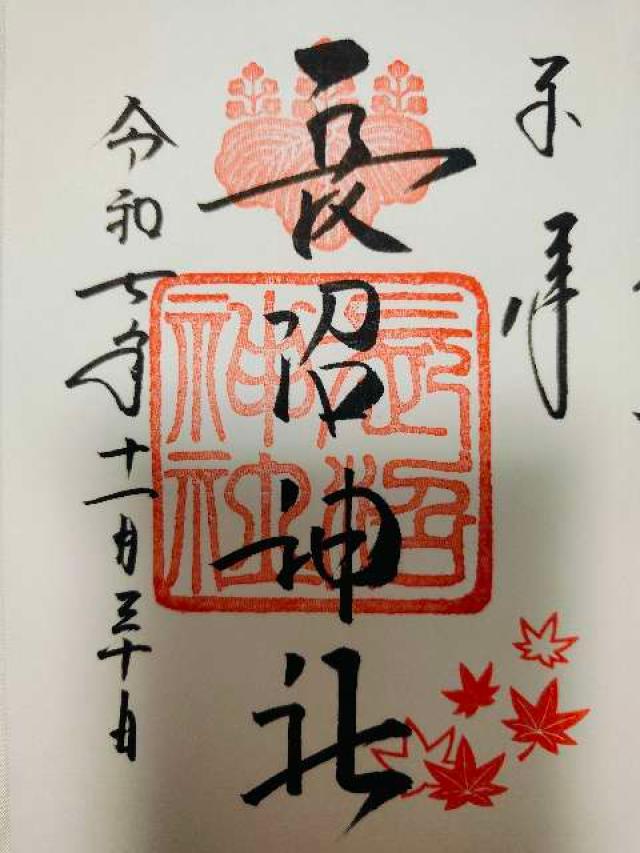 奉拝
長沼神社
長沼神社
令和七年十一月三十日